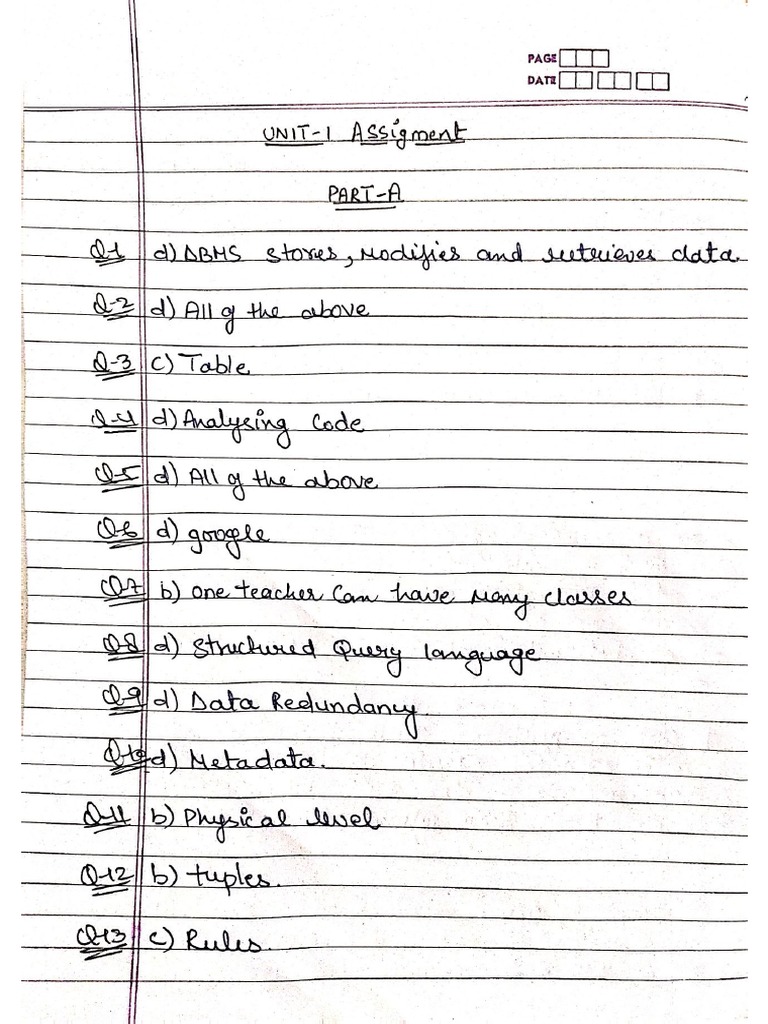 PAGE
DATE
UNIT-1 Assigment
PART-A
Q1 d) DBMS stores, Modifies and retrieves data.
Q-2 d) All of the above
Q-3 c) Table
Q-4 d) Analysing Code
Q-5 d) All of the above
Q-6 d) google
Q-7 b) one teacher Can have Many classes
Q-8 d) Structured Query language
Q-9 d) Data Redundancy.
Q-10 d) Metadata.
Q-11 b) Physical level
Q-12 b) tuples.
Q-13 c) Rules.